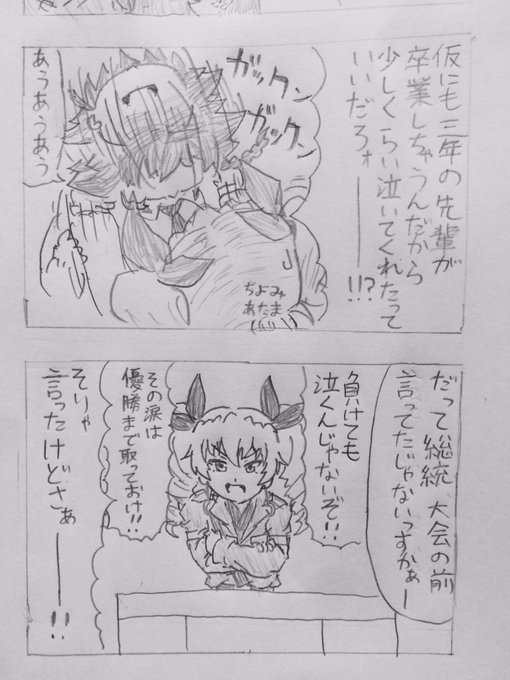 仮にも三年の先輩が
卒業しちゃうんだから
少しくらい泣いてくれたって
いいだろォーー!!?
ガックン
ガックン
あうあうあう
ちよみ
あたま
だって総統、大会の前
言ってたじゃないっすかぁー
負けても
泣くんじゃないぞ!!
その涙は
優勝まで取っておけ!!
そりゃ
言ったけどさぁーー!!